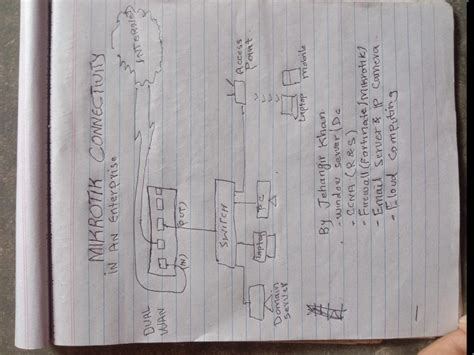 MIKROTIK CONNECTIVITY
in An Enterprise
INTERNET
DUAL
WAN
(IN)
(OUT)
SWITCH
Access
Point
Domain
Server
Laptop
PC
Laptop
Mobile
By Jehangir Khan
- Window Server (DC
- CCNA (R&S)
- Firewall (Fortinate/Mikrotik)
- Email Server & IP Camera
- Cloud Computing